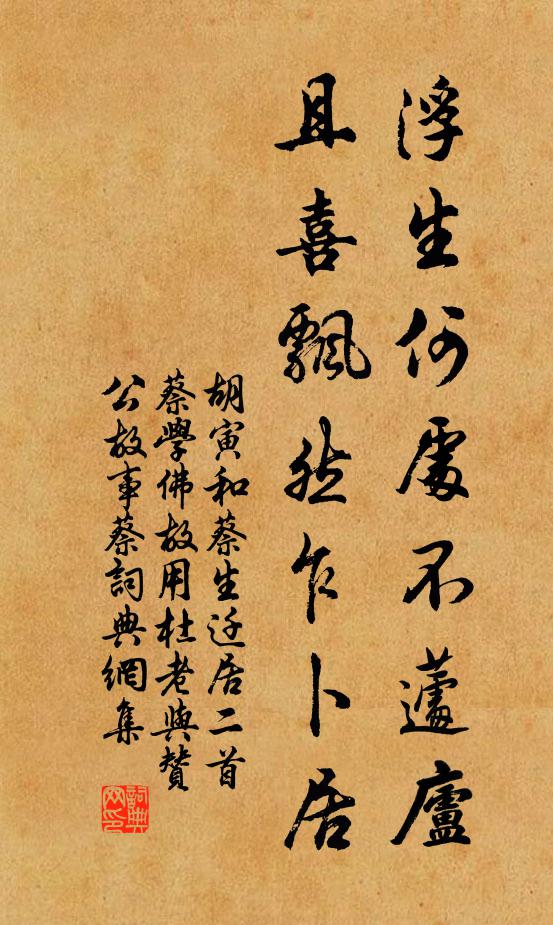 浮生何處不蘧廬
且喜飄然乍卜居
胡寅和蔡生迁居二首
蔡學佛故用杜老與贊
公故事蔡詞典網集
詞典
网印